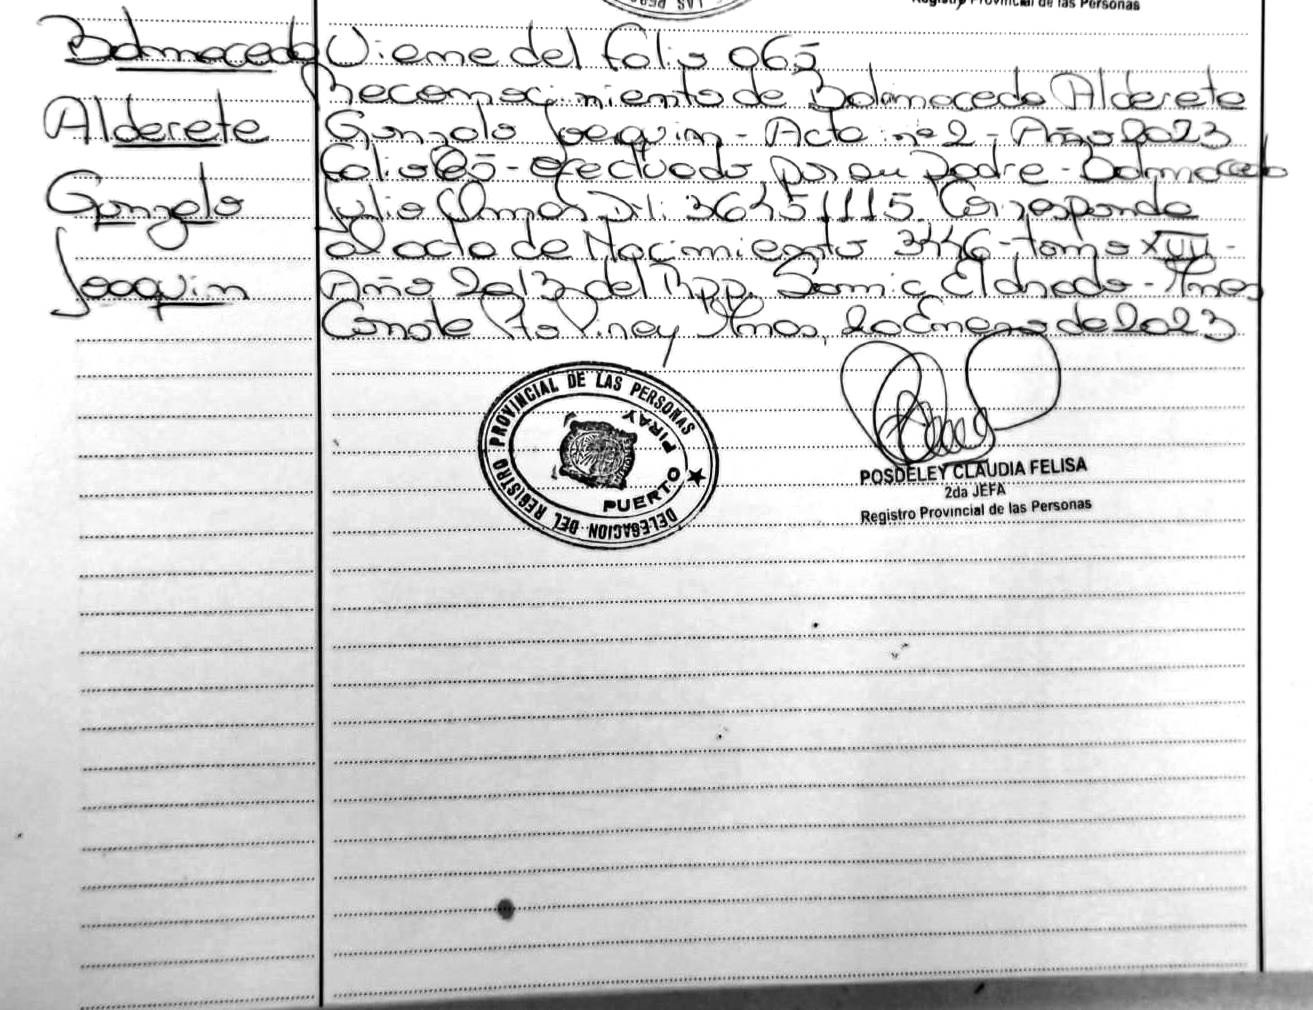 Registro Provincial de las Personas
Balmaceda
Alderete
Gonzalo
Joaquin
Viene del folio 065
Reconocimiento de Balmaceda Alderete
Gonzalo Joaquin - Acta nº 2 - Año 2023
folio 65 - efectuado por su padre - Balmaceda
Julio D.N.I: 36451115. Corresponde
al acta de Nacimiento 3446 - tomo XVII -
Año 2013 del Rpp. Samic Eldorado - Mnes
Conste Pto Piray Mnes, 20 Enero de 2023
DELEGACION DEL REGISTRO PROVINCIAL DE LAS PERSONAS
PUERTO PIRAY
POSDELEY CLAUDIA FELISA
2da JEFA
Registro Provincial de las Personas